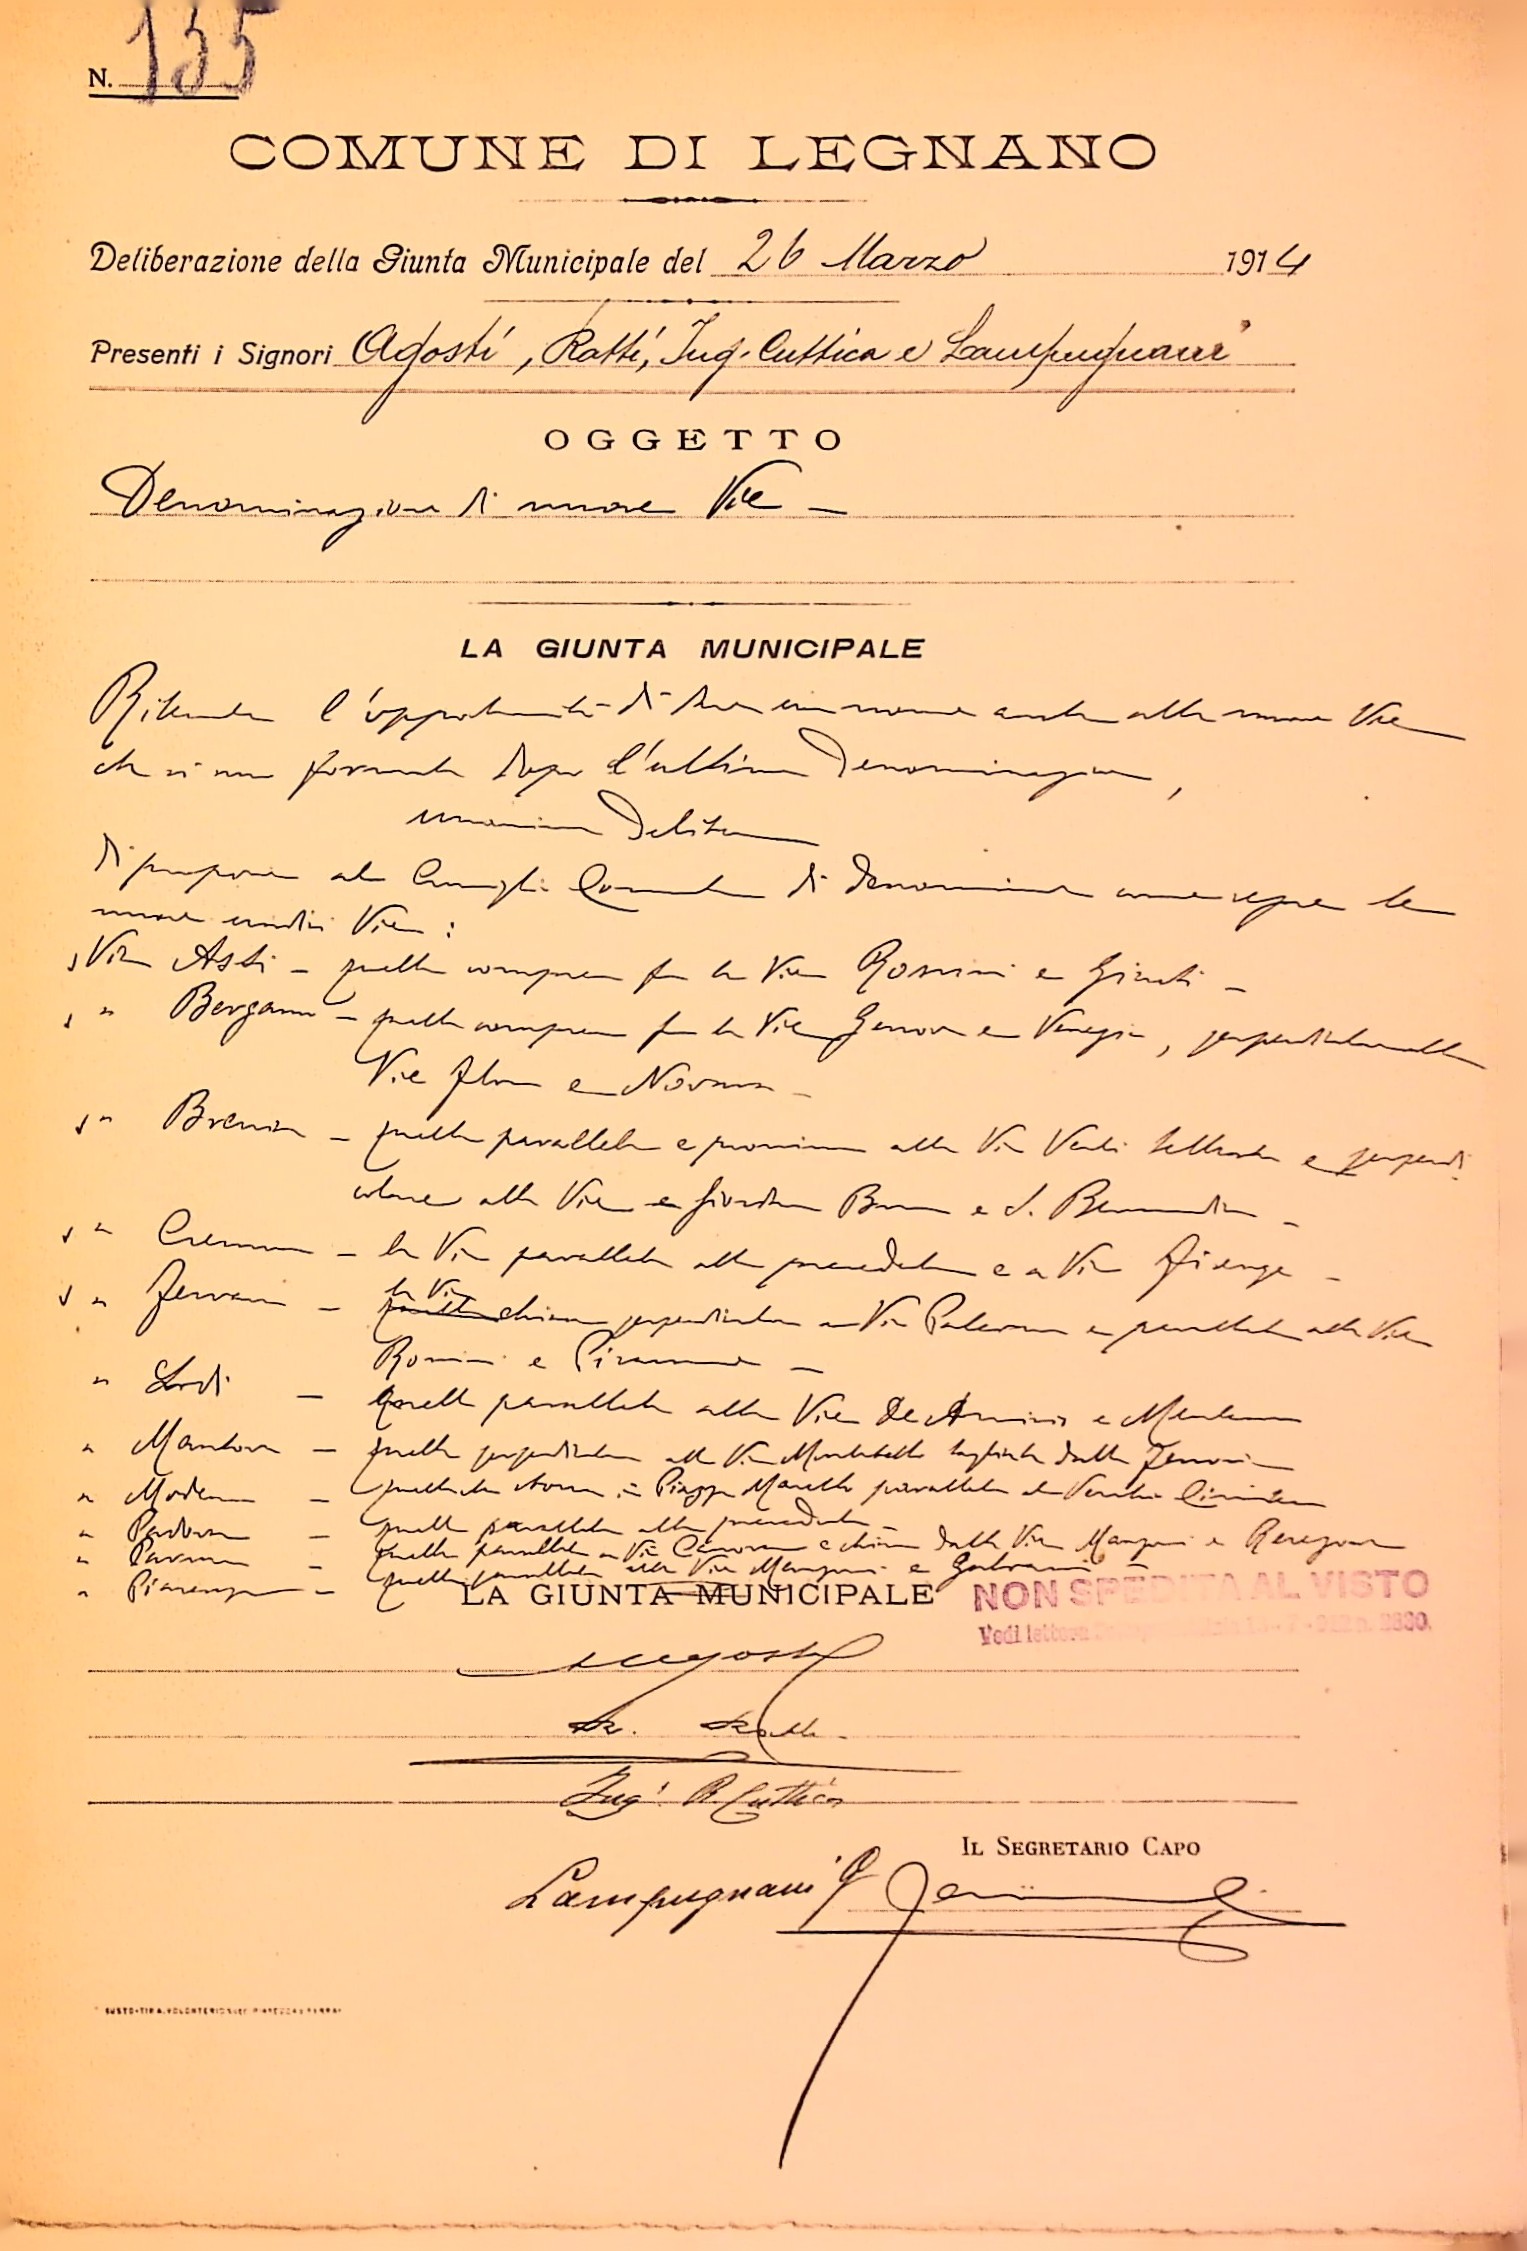 N. 135
COMUNE DI LEGNANO
Deliberazione della Giunta Municipale del 26 Marzo 1914
Presenti i Signori Agosti, Ratti, Ing. Cuttica e Lampugnani
OGGETTO
Denominazione di nuove Vie —
LA GIUNTA MUNICIPALE
Ritenuta l'opportunità di dare un nome anche alle nuove Vie
che si sono formate dopo l'ultima denominazione,
unanime delibera
di proporre al Consiglio Comunale di denominare come segue le
nuove undici Vie:
Via Asti — quella compresa fra le Vie Rosmini e Giusti —
" Bergamo — quella compresa fra le Vie Genova e Venezia, perpendicolare alle
Vie e Novara —
" Brescia — quella parallela e prossima alla Via Venti Settembre e perpendi
colare alle Vie Giordano Bruno e S. Bernardino —
" Cremona — la Via parallela alla precedente e a Via Firenze —
" Ferrara — la Via chiusa perpendicolare a Via Palermo e parallela alle Vie
Rosmini e —
" Lodi — quella parallela alle Vie De Amicis e Mentana
" Mantova — quella perpendicolare alla Via Montebello tagliata dalla Ferrovia
" Modena — quella che in Piazza parallela al Vecchio Cimitero
" Padova — quella parallela alla precedente —
" Parma — quella parallela a Via Canova e chiusa dalle Vie Manzoni e
" Piacenza — quella parallela alle Vie Manzoni e Galvani —
LA GIUNTA MUNICIPALE
NON SPEDITA AL VISTO
Vedi lettera
Agosti
Ratti
Ing. R. Cuttica
IL SEGRETARIO CAPO
Lampugnani